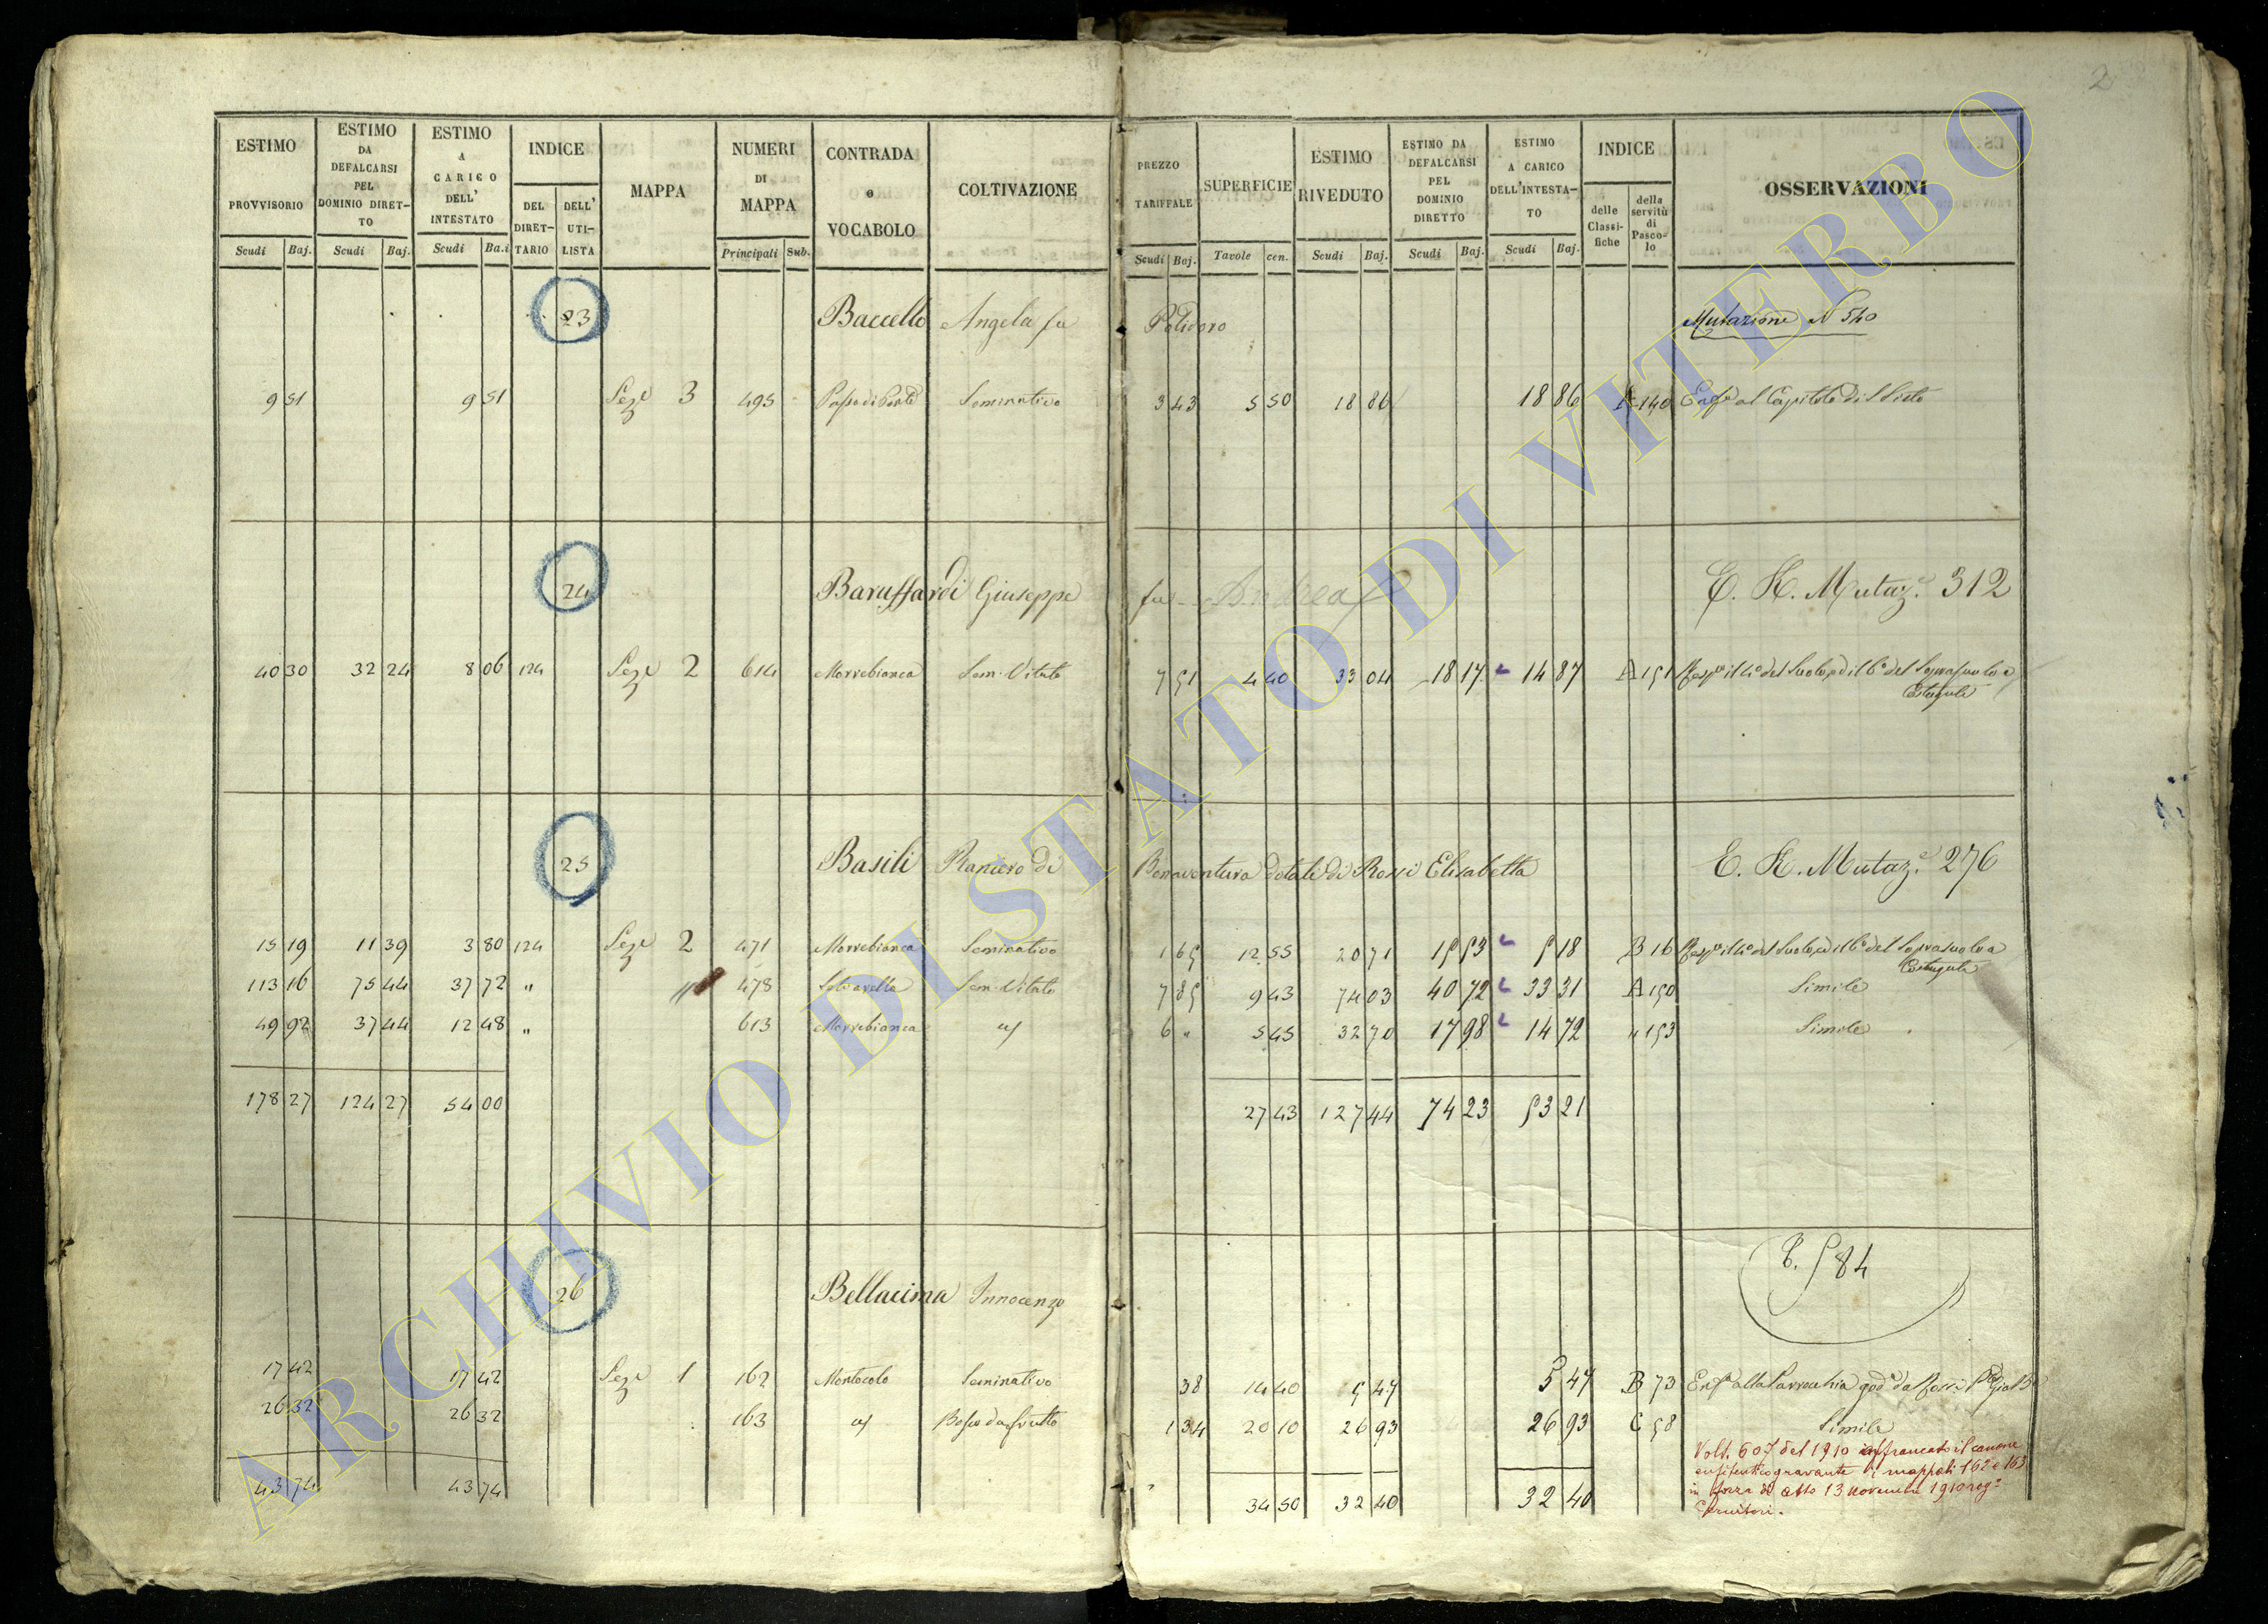 2
ESTIMO PROVVISORIO Scudi Baj.
ESTIMO DA DEFALCARSI PEL DOMINIO DIRET-TO Scudi Baj.
ESTIMO A CARICO DELL' INTESTATO Scudi Ba.i
INDICE DEL DIRET-TARIO DELL' UTI-LISTA
MAPPA
NUMERI DI MAPPA Principali Sub.
CONTRADA e VOCABOLO
COLTIVAZIONE
PREZZO TARIFFALE Scudi Baj.
SUPERFICIE Tavole cen.
ESTIMO RIVEDUTO Scudi Baj.
ESTIMO DA DEFALCARSI PEL DOMINIO DIRETTO Scudi Baj.
ESTIMO A CARICO DELL'INTESTA-TO Scudi Baj.
INDICE delle Classi-fiche della servitù di Pasco-lo
OSSERVAZIONI
23 Baccello Angela fu Polidoro Mutazione N 540
9 51 9 51 Seze 3 495 Passo di Ponte Seminativo 3 43 5 50 18 86 18 86 140 Enfa al Capitolo di S Sisto
24 Baruffardi Giuseppe fu Andrea E. K. Mutaz.e 312
40 30 32 24 8 06 124 Seze 2 614 Morrebianca Sem. Vitato 7 51 4 40 33 04 18 17 14 87 A 151 del Suolo, ed il 6o del Soprasuolo a
Costaguti
25 Basili Raniero di Bonaventura dotale di Rossi Elisabetta E. K. Mutaz.e 276
15 19 11 39 3 80 124 Seze 2 471 Morrebianca Seminativo 1 65 12 55 20 71 15 53 5 18 B 16 del Suolo, ed il 6o del Soprasuolo a
Costaguti
113 16 75 44 37 72 " " 478 Sem. Vitato 7 85 9 43 74 03 40 72 33 31 A 150 Simile
49 92 37 44 12 48 " 613 Morrebianca 6 " 5 45 32 70 17 98 14 72 " 153 Simile
178 27 124 27 54 00 27 43 127 44 74 23 53 21
26 Bellacima Innocenzo P. 584
17 42 17 42 Seze 1 162 Montocolo Seminativo 38 14 40 5 47 5 47 B 73 Enfa alla Parrocchia goda da Rossi
26 32 26 32 163 Bosco da frutto 1 34 20 10 26 93 26 93 C 58 Simile
43 74 43 74 34 50 32 40 32 40
Volt. 607 del 1910 affrancato il canone
enfiteutico gravante i mappali 162 e 163
in forza di atto 13 novembre 1910 rega
ARCHIVIO DI STATO DI VITERBO